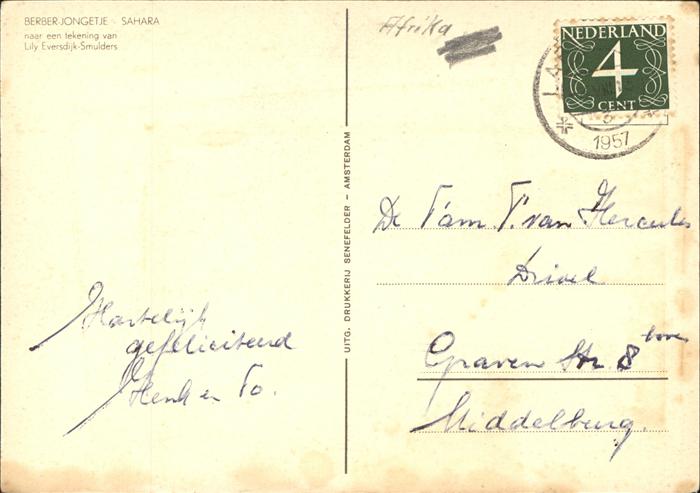 BERBER-JONGETJE - SAHARA
naar een tekening van
Lily Eversdijk-Smulders
Afrika
NEDERLAND
4
CENT
1957
UITG. DRUKKERIJ SENEFELDER – AMSTERDAM
De Fam. T. van Hercules
Driel
Graven Str 8 boven
Middelburg.
Hartelijk
gefeliciteerd
Henk en To.